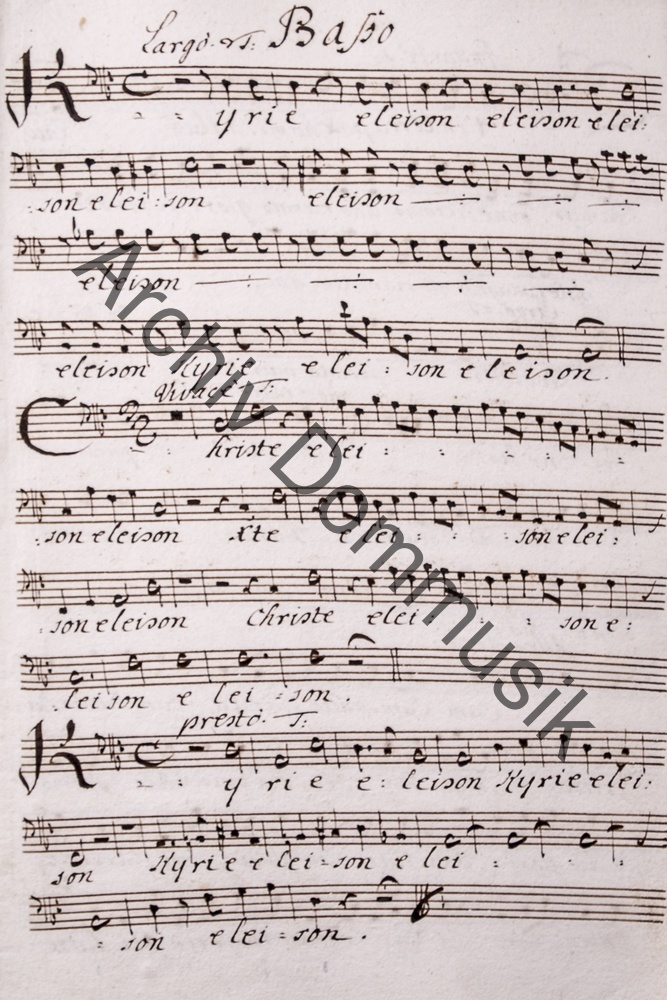 Largo. T. Basso
Kyrie eleison eleison elei:
son elei: son eleison
eleison
eleison Kyrie e lei: son eleison.
Vivace T.
Christe elei:
son eleison Xte elei: son elei:
son eleison Christe elei: son e:
leison e lei: son.
presto. T.
Kyrie e: leison Kyrie elei:
son Kyrie elei=son e lei:
son elei=son.
Archiv Dommusik